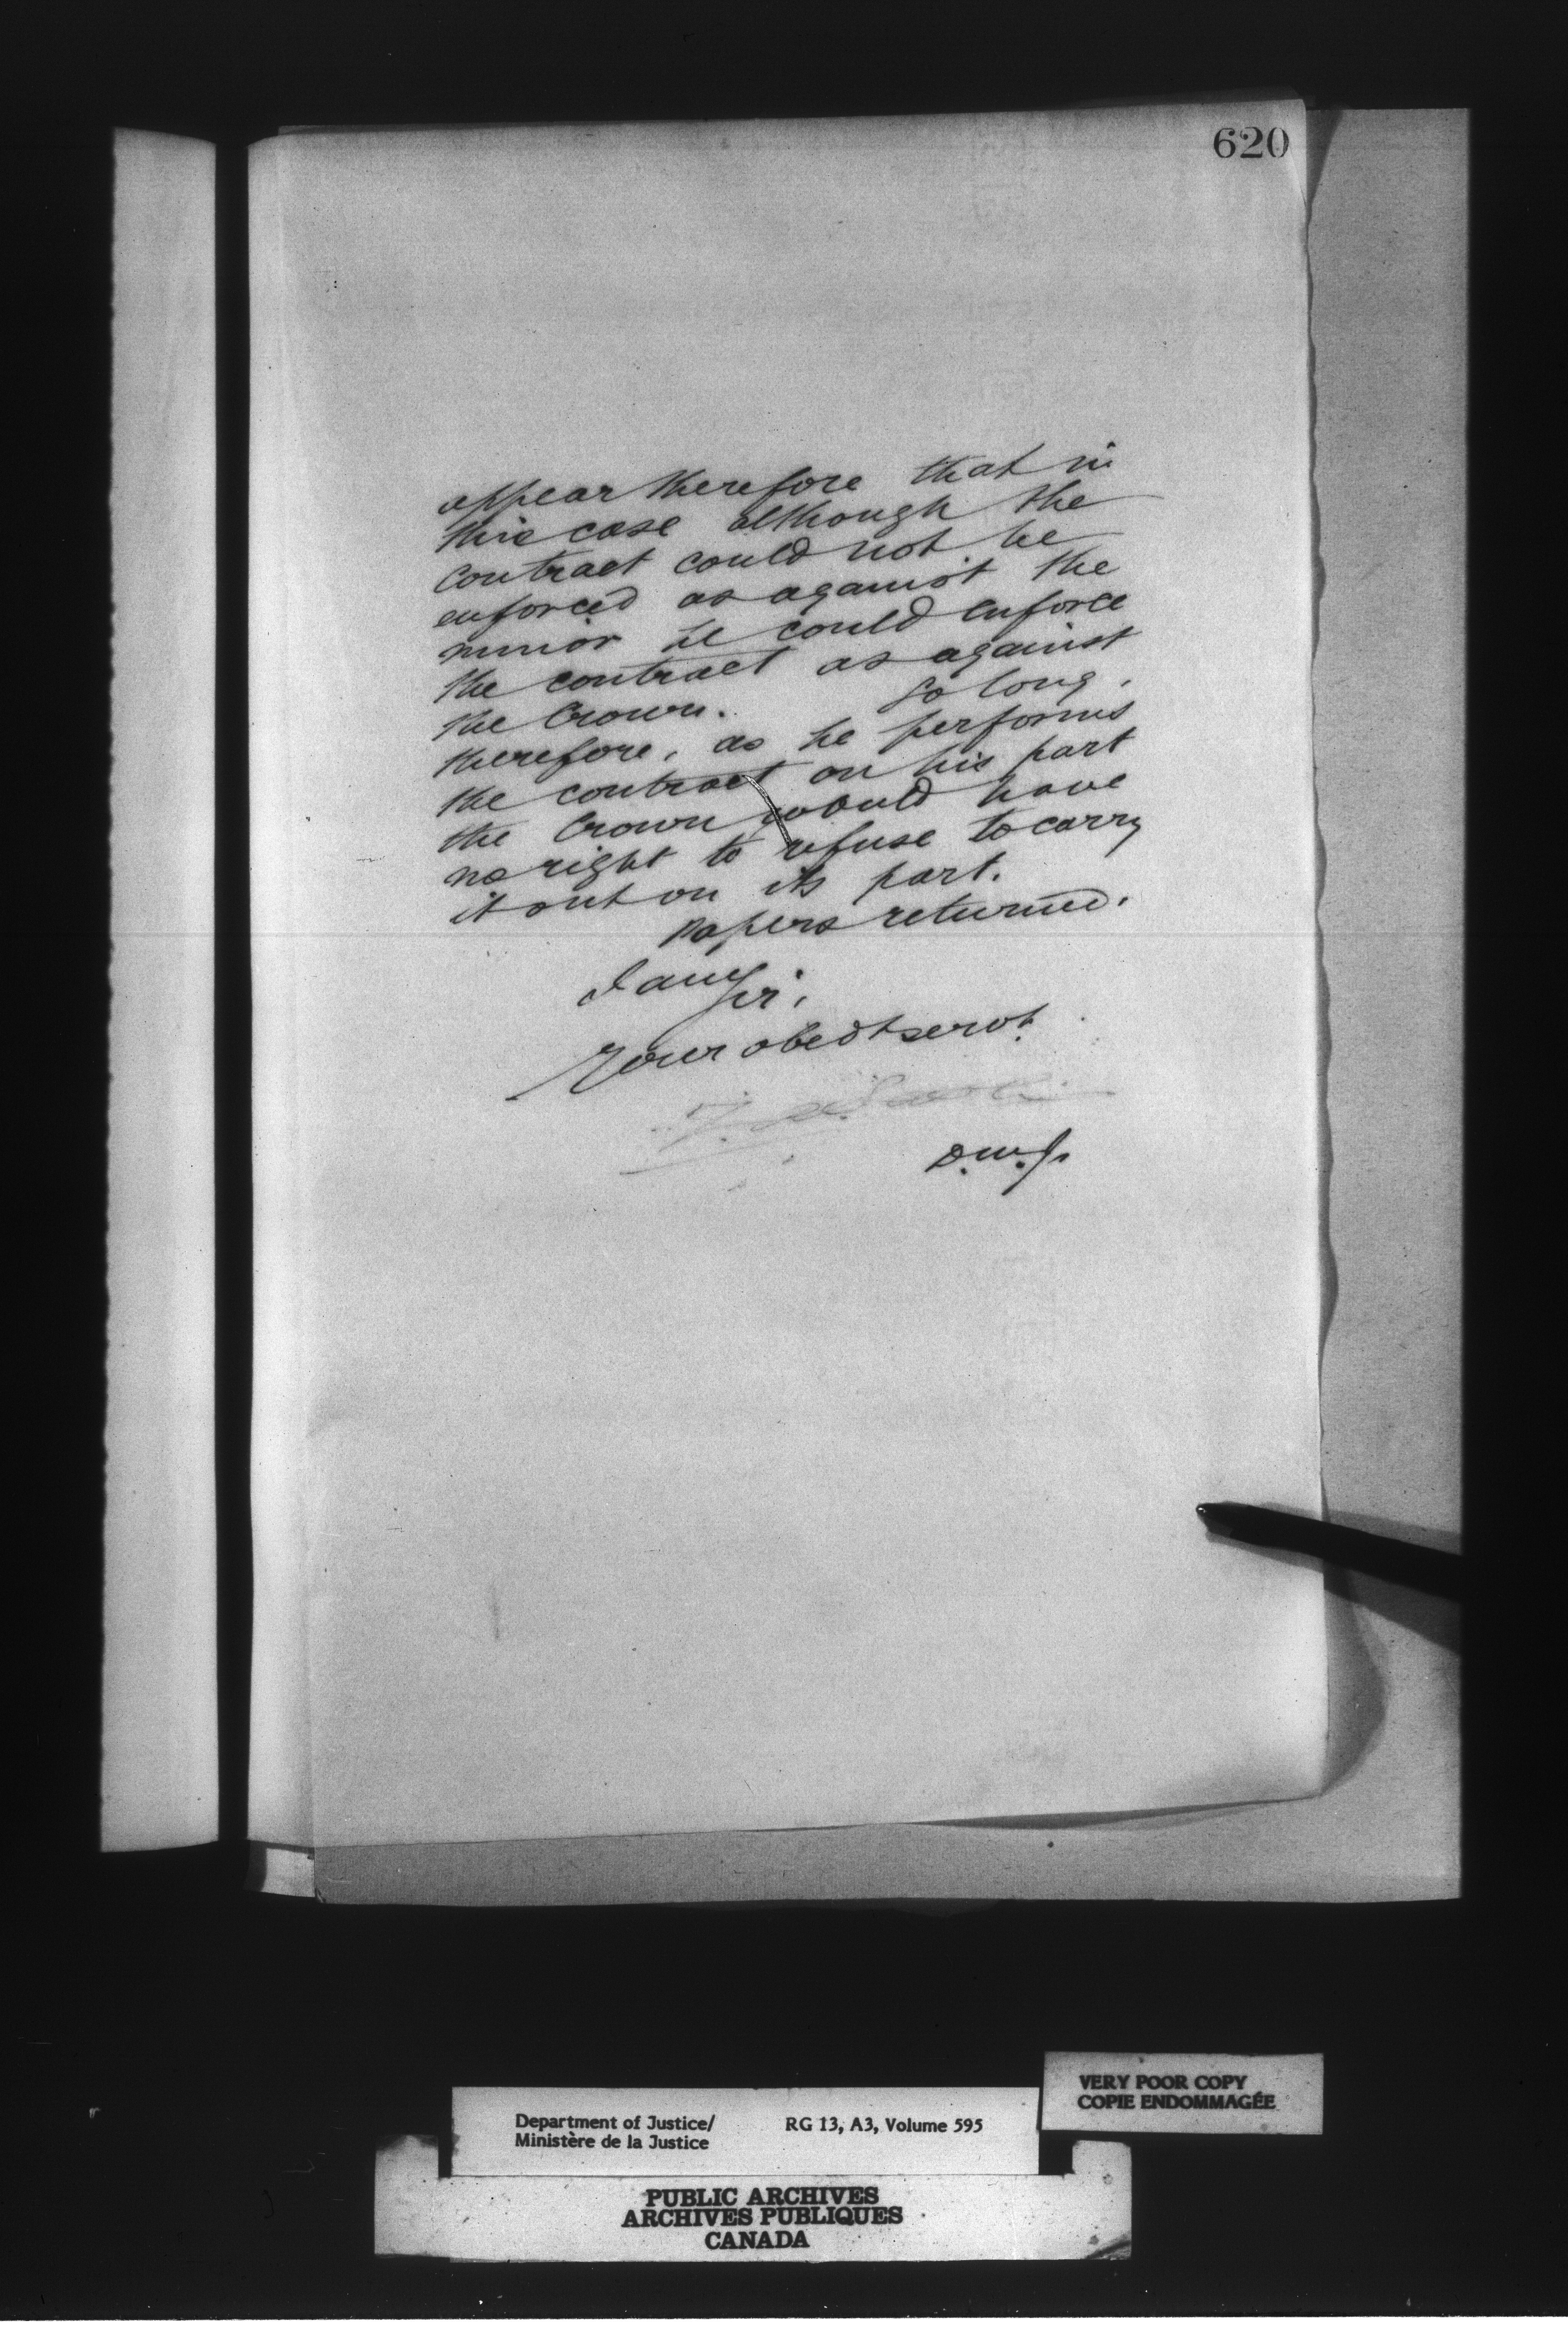 620
appear therefore that in
this case although the
contract could not be
enforced as against the
minor he could enforce
the contract as against
the Crown. So long,
therefore, as he performs
the contract on his part
the Crown would have
no right to refuse to carry
it out on its part.
Papers returned.
I am Sir,
Your obedt servt.
D.M.J.
VERY POOR COPY
COPIE ENDOMMAGÉE
Department of Justice/ RG 13, A3, Volume 595
Ministère de la Justice
PUBLIC ARCHIVES
ARCHIVES PUBLIQUES
CANADA